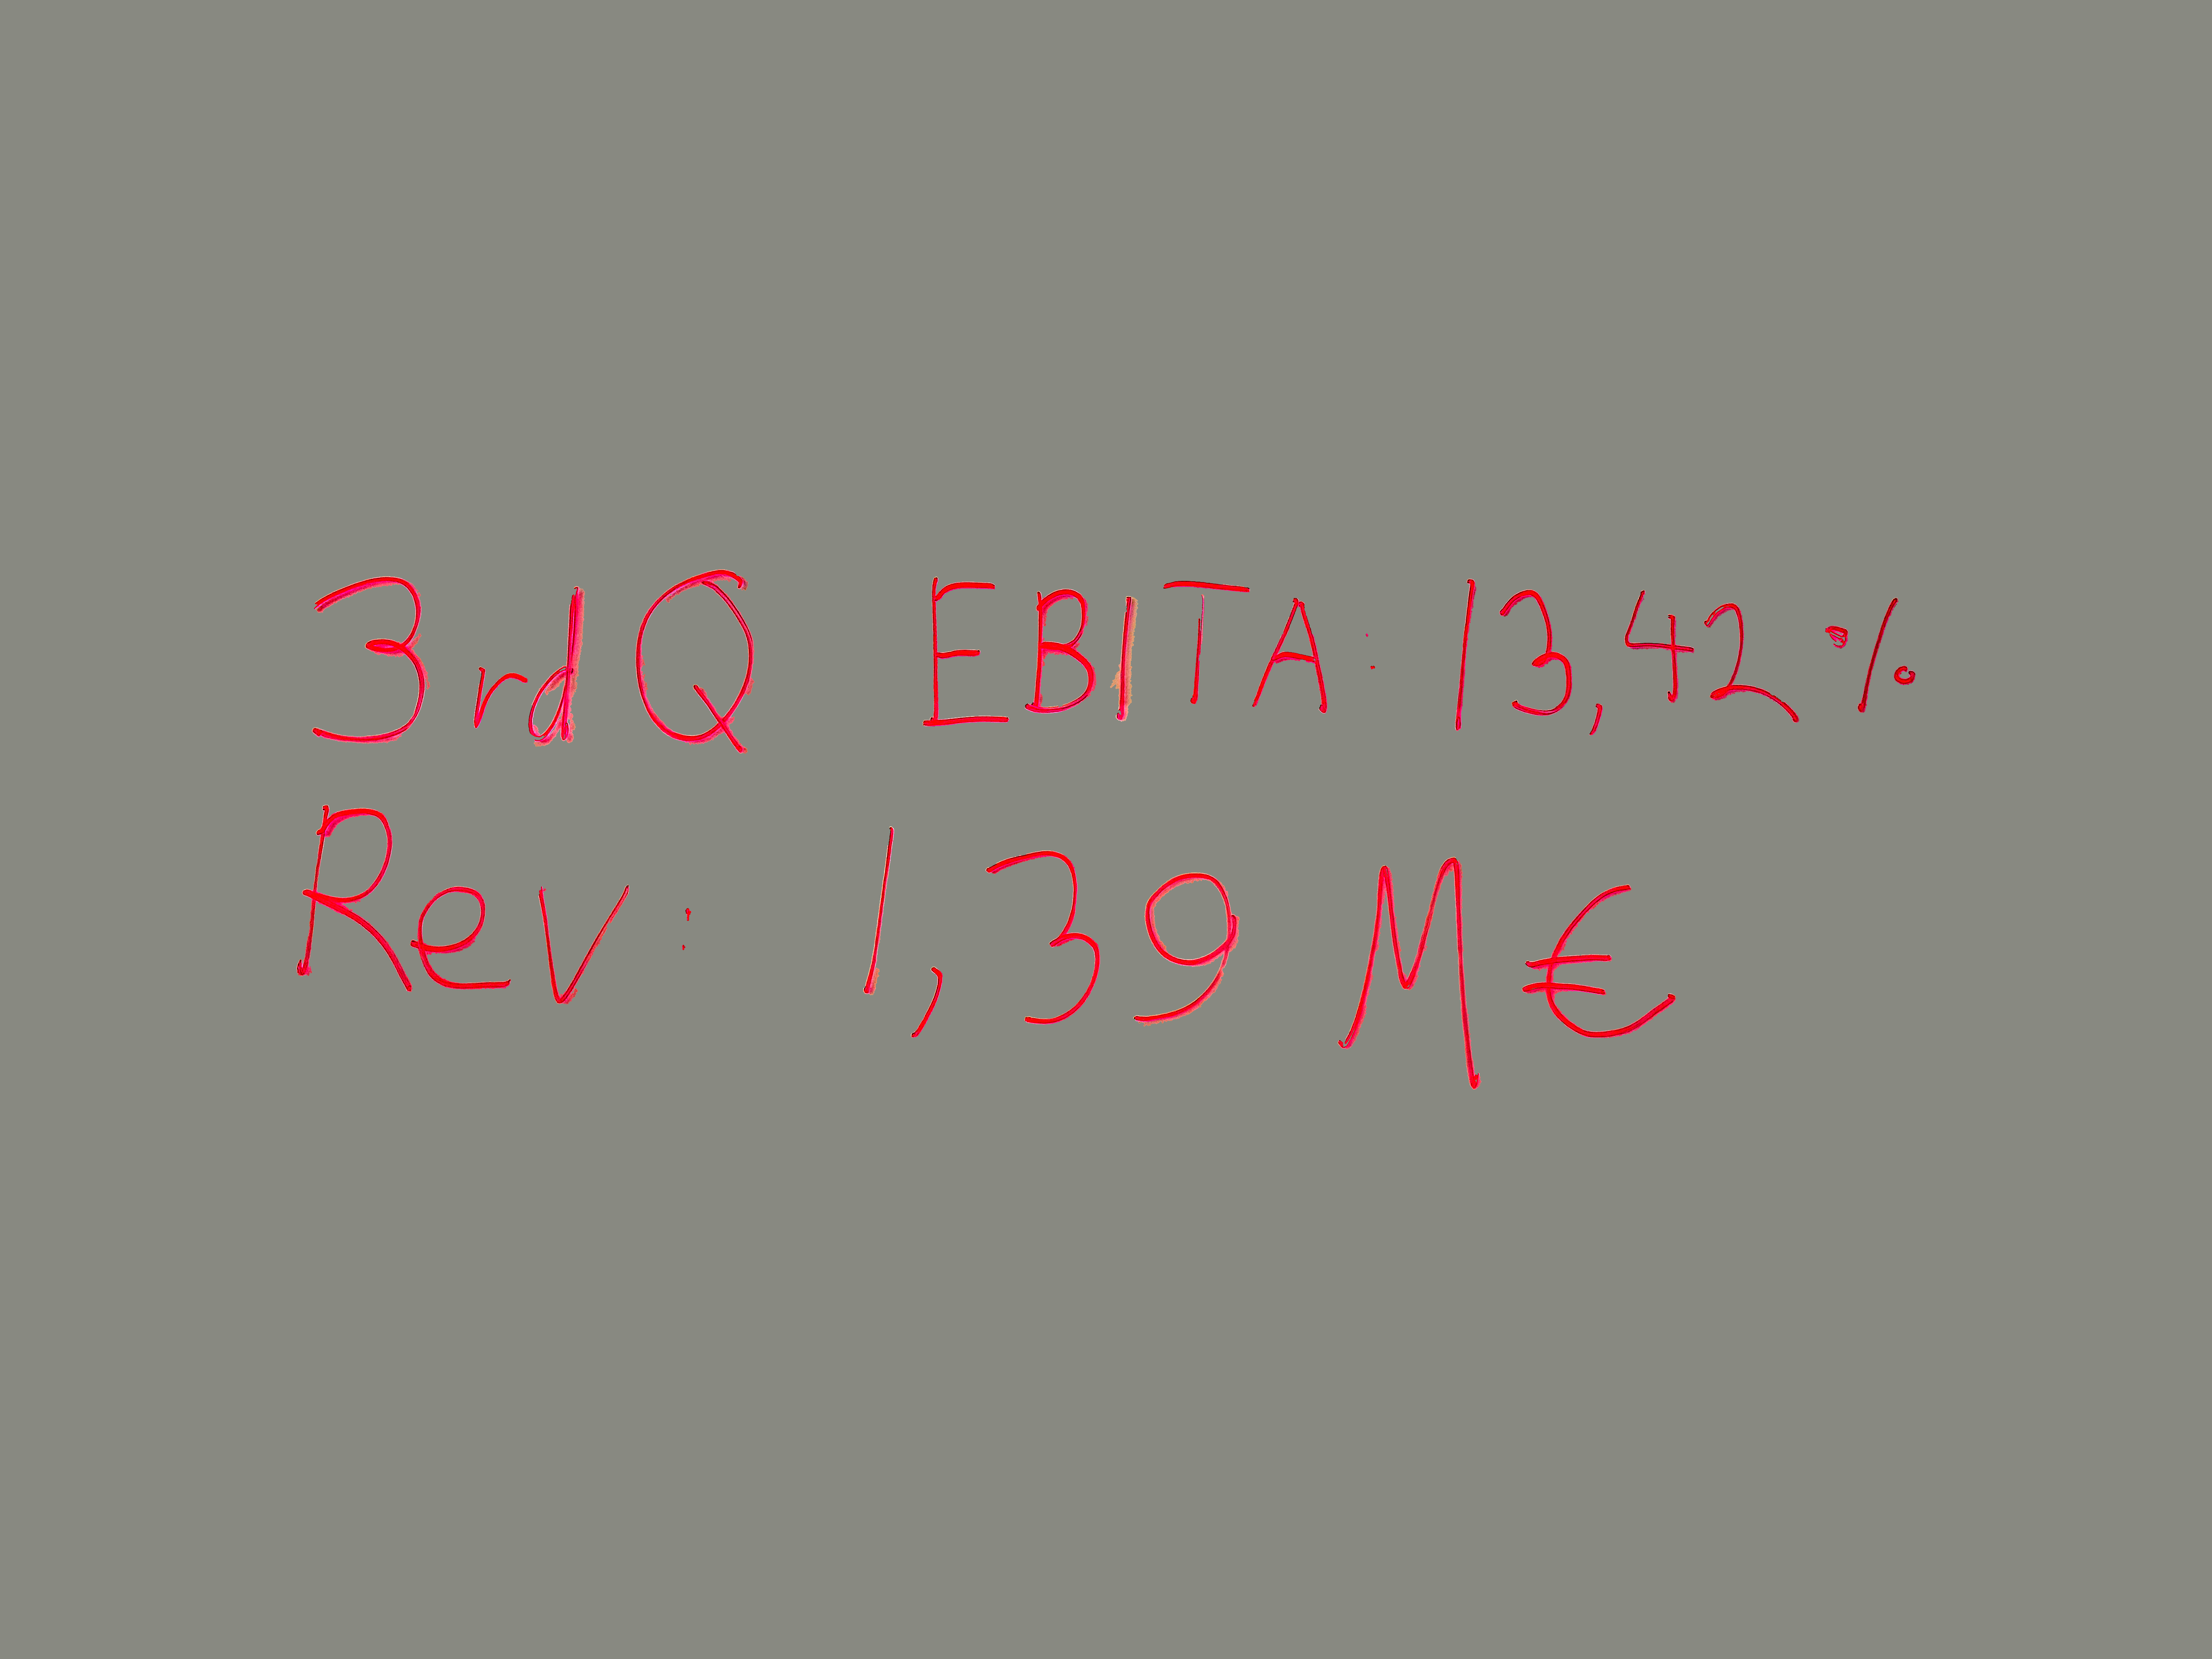 3rd Q EBITA: 13,42 %
Rev: 1,39 M€